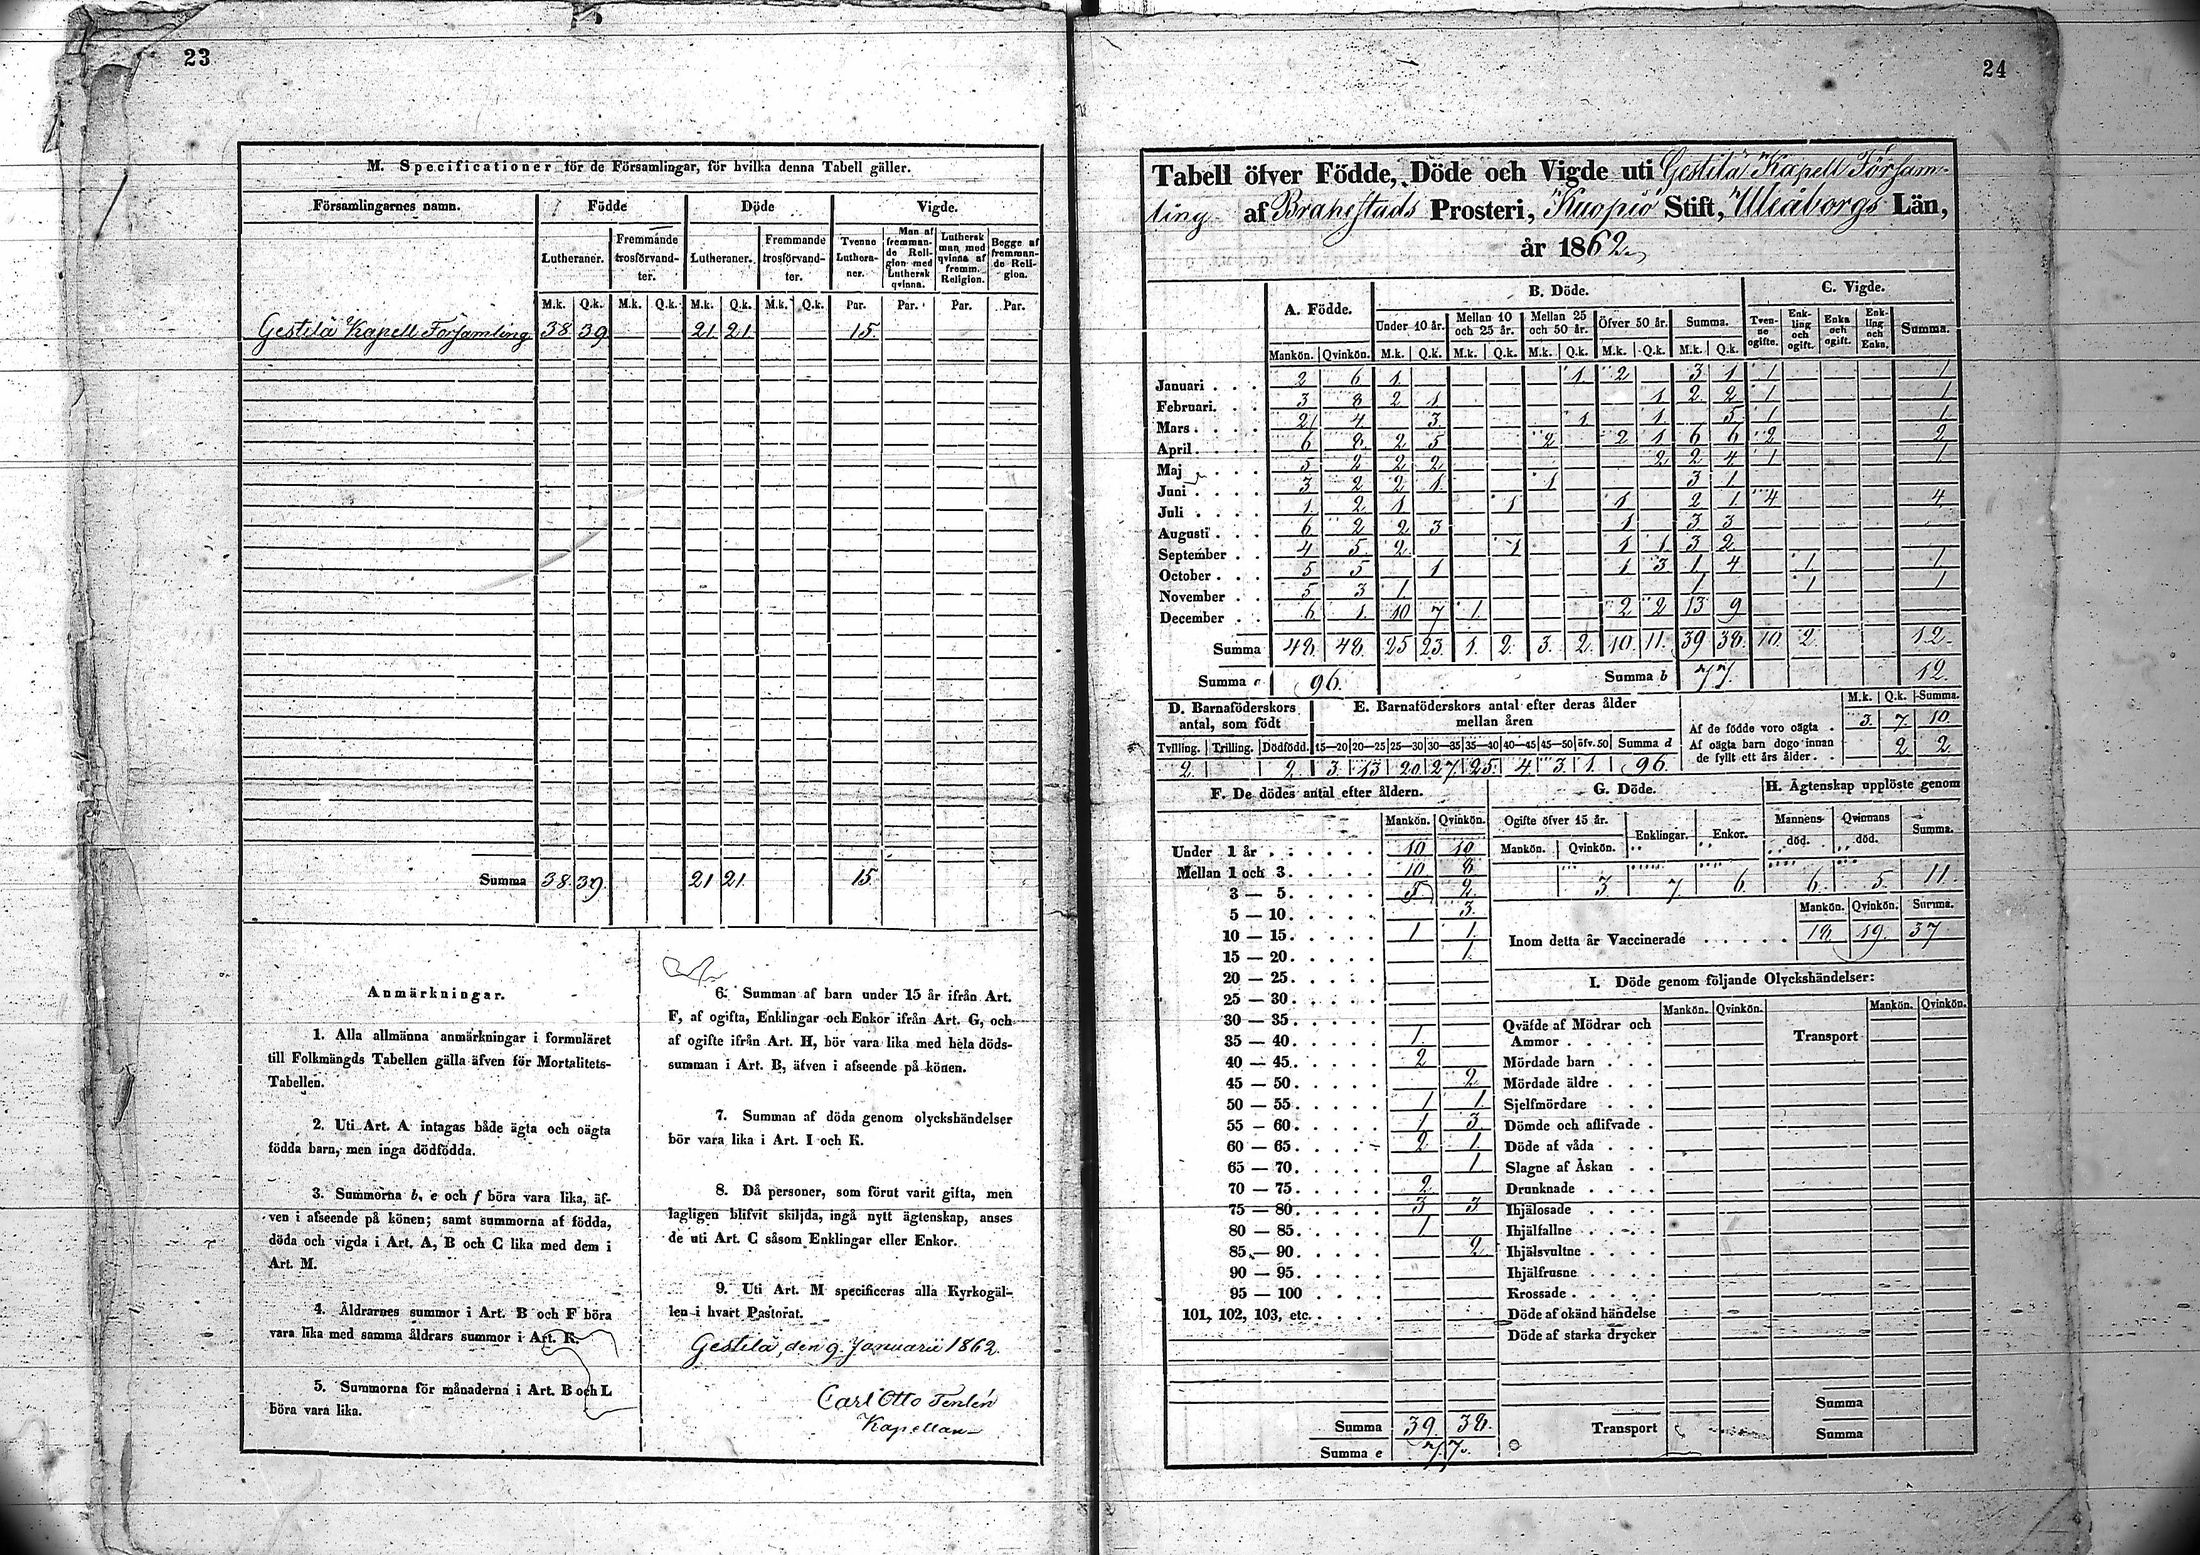 23
M. Specificationer för de Församlingar, för hvilka denna Tabell gäller.
Församlingarnes namn. Födde Döde Vigde.
Lutheraner. Fremmande trosförvandter. Lutheraner. Fremmande trosförvandter. Tvenne Lutheraner. Man af fremmande Religion med Luthersk qvinna. Luthersk man med qvinna af fremm. Religion. Begge af fremmande Religion.
M.k. Q.k. M.k. Q.k. M.k. Q.k. M.k. Q.k. Par. Par. Par. Par.
Gestilä Kapell Församling 38 39 21 21 15.
Summa 38. 39. 21 21. 15.
Anmärkningar.
1. Alla allmänna anmärkningar i formuläret
till Folkmängds Tabellen gälla äfven för Mortalitets-
Tabellen.
2. Uti Art. A intagas både ägta och oägta
födda barn, men inga dödfödda.
3. Summorna b, e och f böra vara lika, äf-
ven i afseende på könen; samt summorna af födda,
döda och vigda i Art. A, B och C lika med dem i
Art. M.
4. Åldrarnes summor i Art. B och F böra
vara lika med samma åldrars summor i Art. K.
5. Summorna för månaderna i Art. B och L
böra vara lika.
6. Summan af barn under 15 år ifrån Art.
F, af ogifta, Enklingar och Enkor ifrån Art. G, och
af ogifte ifrån Art. H, bör vara lika med hela döds-
summan i Art. B, äfven i afseende på könen.
7. Summan af döda genom olyckshändelser
bör vara lika i Art. I och K.
8. Då personer, som förut varit gifta, men
lagligen blifvit skiljda, ingå nytt ägtenskap, anses
de uti Art. C såsom Enklingar eller Enkor.
9. Uti Art. M specificeras alla Kyrkogäl-
len i hvart Pastorat.
Gestilä, den 9. Januarii 1862.
Carl Otto Tenlén
Kapellan
24
Tabell öfver Födde, Döde och Vigde uti Gestilä Kapell Församling
af Brahestads Prosteri, Kuopio Stift, Uleåborgs Län,
år 1862.
A. Födde. B. Döde. C. Vigde.
Under 10 år. Mellan 10 och 25 år. Mellan 25 och 50 år. Öfver 50 år. Summa. Tvenne ogifte. Enkling och ogift. Enka och ogift. Enkling och Enka. Summa.
Mankön. Qvinkön. M.k. Q.k. M.k. Q.k. M.k. Q.k. M.k. Q.k. M.k. Q.k.
Januari 2 6 1 1 2 3 1 1 1
Februari. 3 8 2 1 1 2 2 1 1
Mars 2 4 3 1 1 5 1 1
April 6 8 2 5 2 2 1 6 6 2 2
Maj 5 2 2 2 2 2 4 1 1
Juni 3 2 2 1 1 3 1
Juli 1 2 1 1 1 2 1 4 4
Augusti 6 2 2 3 1 3 3
September 4 5 2 1 1 1 3 2
October 5 5 1 1 3 1 4 1 1
November 5 3 1 1 1 1
December 6 1 10 7 1 2 2 13 9
Summa 48. 48. 25 23. 1. 2. 3. 2. 10. 11. 39 38. 10. 2. 12.
Summa a 96. Summa b 77. 12.
D. Barnaföderskors antal, som födt
Tvilling. Trilling. Dödfödd.
2. 2.
E. Barnaföderskors antal efter deras ålder mellan åren
15—20 20—25 25—30 30—35 35—40 40—45 45—50 öfv. 50 Summa d
3. 13 20 27 25. 4. 3. 1. 96.
M.k. Q.k. Summa.
Af de födde voro oägta 3. 7. 10.
Af oägta barn dogo innan de fyllt ett års ålder 2. 2.
F. De dödes antal efter åldern.
Mankön. Qvinkön.
Under 1 år 10 10
Mellan 1 och 3 10 8
3 — 5 5 2
5 — 10 3.
10 — 15 1 1.
15 — 20 1.
20 — 25
25 — 30
30 — 35
35 — 40 1.
40 — 45 2
45 — 50 2
50 — 55 1 1.
55 — 60 1 3
60 — 65 2 1.
65 — 70 1
70 — 75 2
75 — 80 3 3
80 — 85 1
85 — 90 2
90 — 95
95 — 100
101, 102, 103, etc.
Summa 39. 38.
Summa e 77.
G. Döde.
Ogifte öfver 15 år. Enklingar. Enkor.
Mankön. Qvinkön.
3. 7. 6.
H. Ägtenskap upplöste genom
Mannens död. Qvinnans död. Summa.
6. 5. 11.
Mankön. Qvinkön. Summa.
Inom detta år Vaccinerade 18 19. 37
I. Döde genom följande Olyckshändelser:
Mankön. Qvinkön. Mankön. Qvinkön.
Qväfde af Mödrar och Ammor Transport
Mördade barn
Mördade äldre
Sjelfmördare
Dömde och aflifvade
Döde af våda
Slagne af Åskan
Drunknade
Ihjälosade
Ihjälfallne
Ihjälsvultne
Ihjälfrusne
Krossade
Döde af okänd händelse
Döde af starka drycker
Summa
Transport Summa